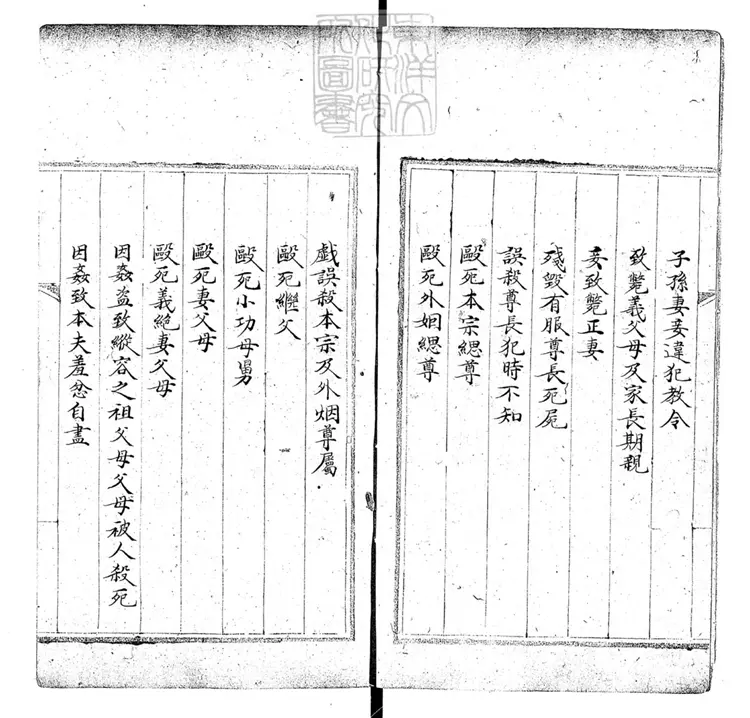 子孫妻妾違犯教令
致斃義父母及家長期親
妾致斃正妻
殘毀有服尊長死屍
誤殺尊長犯時不知
毆死本宗緦尊
毆死外姻緦尊
戲誤殺本宗及外烟尊屬
毆死繼父
毆死小功母舅
毆死妻父母
毆死義絕妻父母
因姦盜致縱容之祖父母父母被人殺死
因姦致本夫羞忿自盡